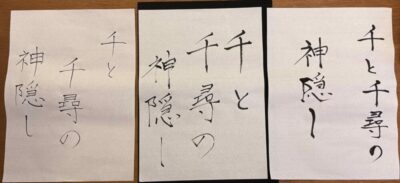 千と
千尋の
神隠し
千と
千尋の
神隠し
千と千尋の
神隠し